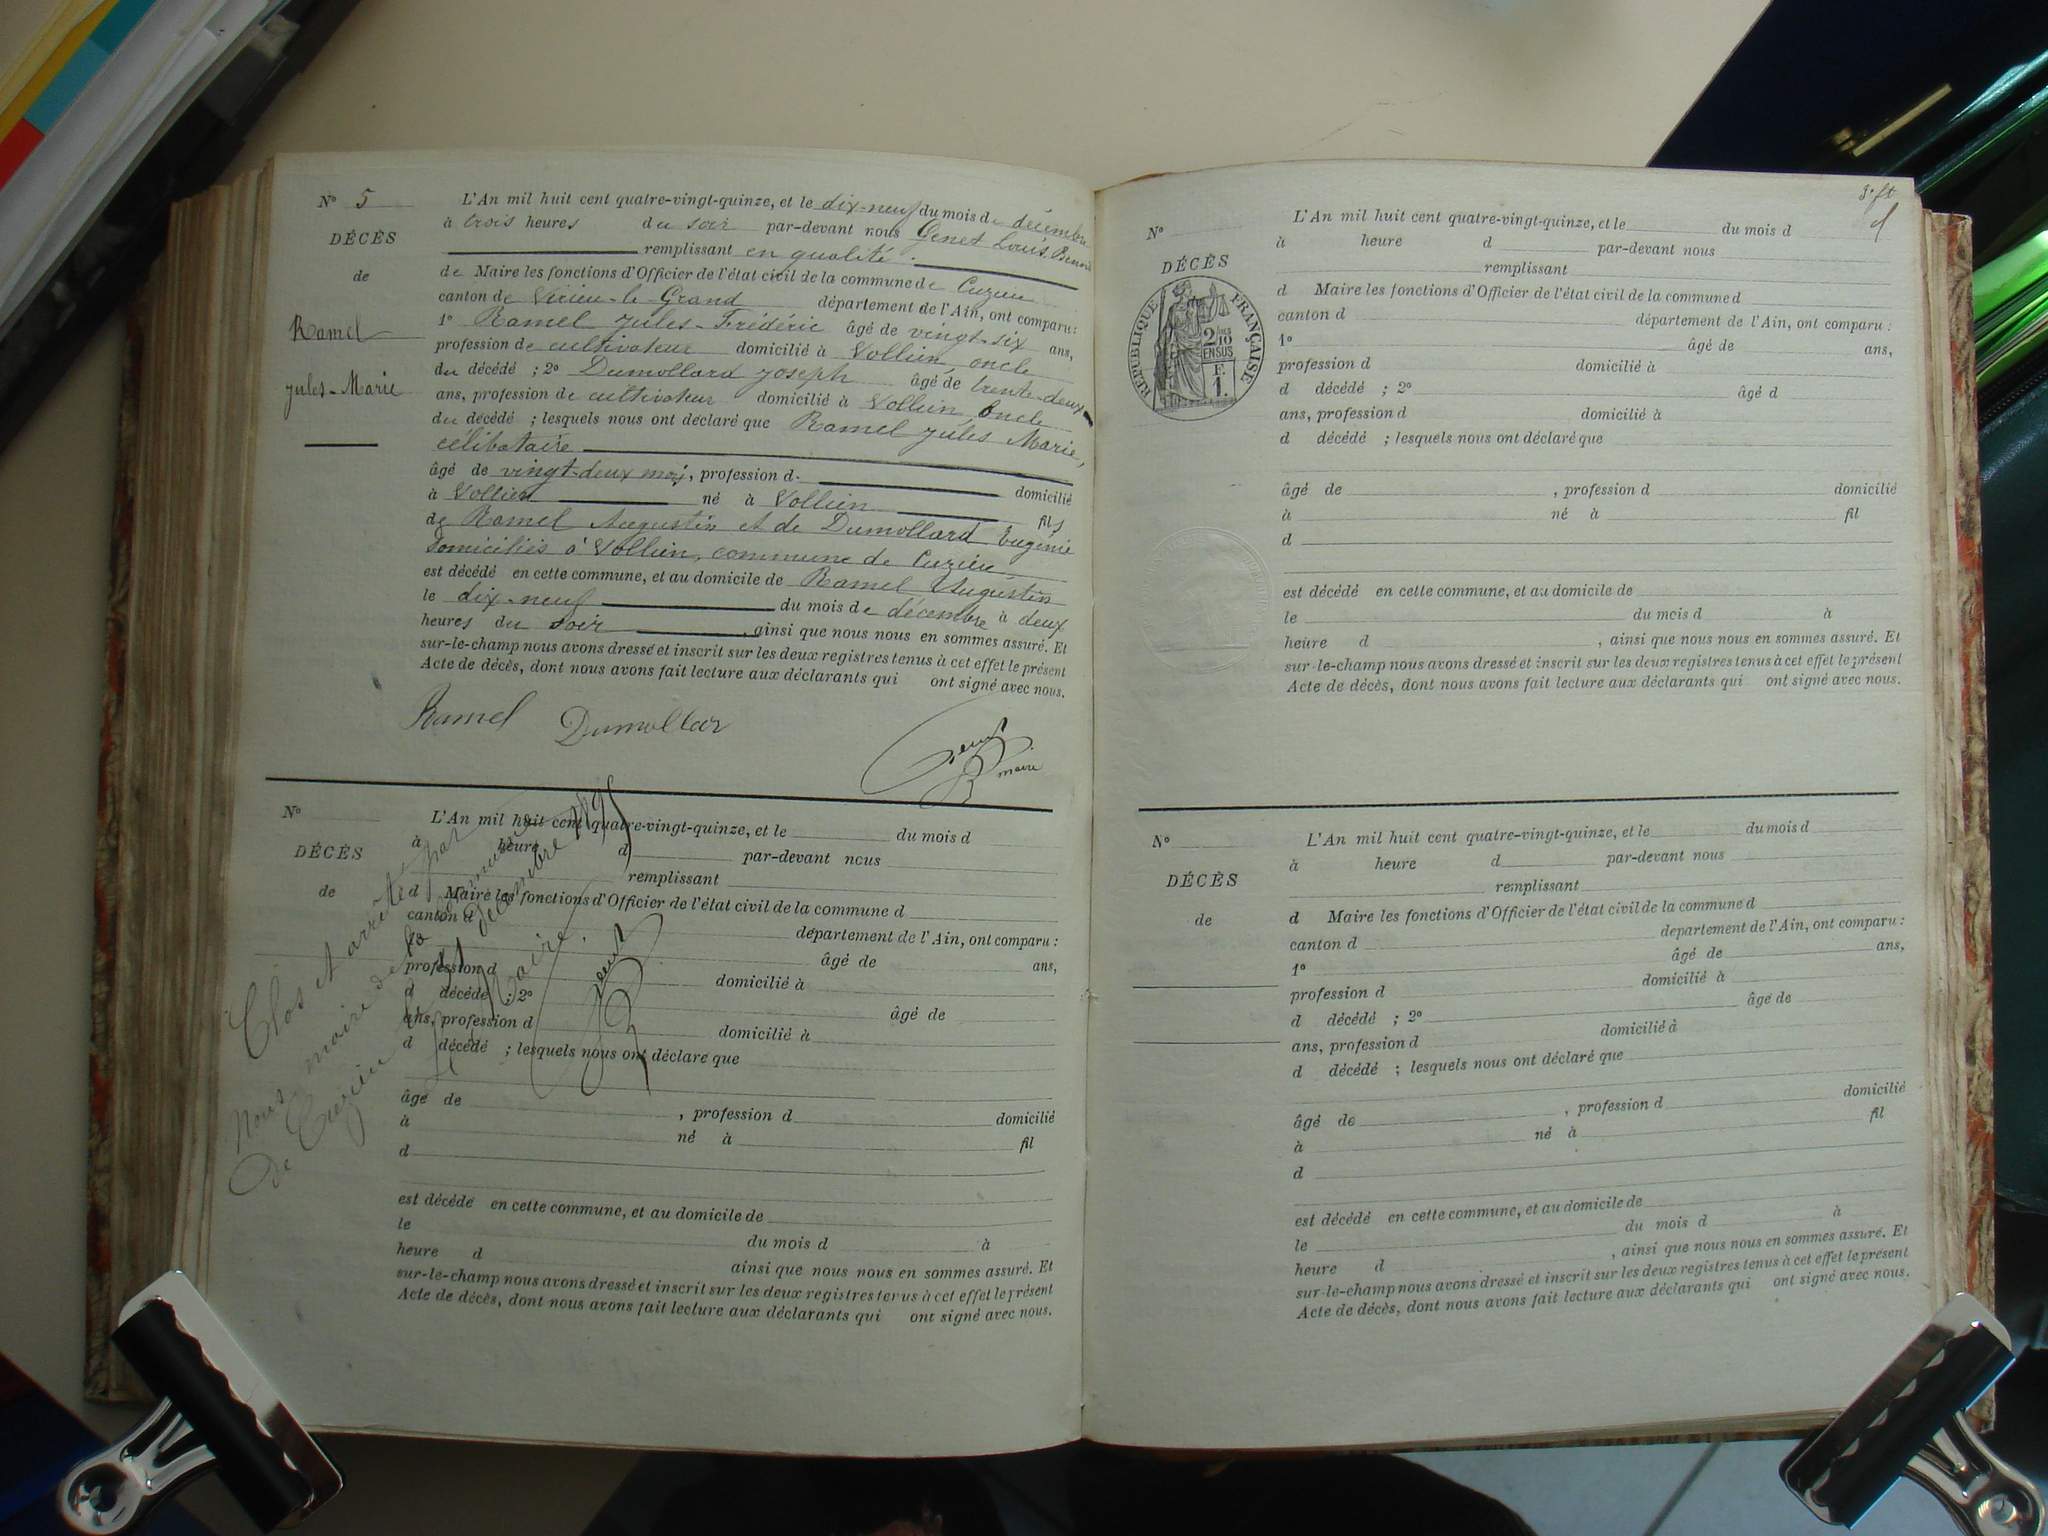 N° 5
DÉCÈS
de
Ramel
Jules-Marie
L'An mil huit cent quatre-vingt-quinze, et le dix-neuf du mois de décembre
à trois heures du soir par-devant nous Genet Louis Benoit
remplissant en qualité
de Maire les fonctions d'Officier de l'état civil de la commune de Cuzieu
canton de Virieu-le-Grand département de l'Ain, ont comparu :
1° Ramel Jules-Frédéric âgé de vingt-six ans,
profession de cultivateur domicilié à Vollien, oncle
du décédé ; 2° Dumollard Joseph âgé de trente-deux
ans, profession de cultivateur domicilié à Vollien, oncle
du décédé ; lesquels nous ont déclaré que Ramel Jules Marie,
célibataire
âgé de vingt-deux mois, profession d domicilié
à Vollien né à Vollien fils
de Ramel Augustin et de Dumollard Eugénie
domiciliés à Vollien, commune de Cuzieu
est décédé en cette commune, et au domicile de Ramel Augustin
le dix-neuf du mois de décembre à deux
heures du soir, ainsi que nous nous en sommes assuré. Et
sur-le-champ nous avons dressé et inscrit sur les deux registres tenus à cet effet le présent
Acte de décès, dont nous avons fait lecture aux déclarants qui ont signé avec nous.
Ramel Dumollar Genet
maire
N°
DÉCÈS
de
L'An mil huit cent quatre-vingt-quinze, et le du mois d
à heure d par-devant nous
remplissant
d Maire les fonctions d'Officier de l'état civil de la commune d
canton d département de l'Ain, ont comparu :
1° âgé de ans,
profession d domicilié à
d décédé ; 2° âgé de
ans, profession d domicilié à
d décédé ; lesquels nous ont déclaré que
âgé de , profession d domicilié
à né à fil
d
est décédé en cette commune, et au domicile de
le du mois d à
heure d ainsi que nous nous en sommes assuré. Et
sur-le-champ nous avons dressé et inscrit sur les deux registres tenus à cet effet le présent
Acte de décès, dont nous avons fait lecture aux déclarants qui ont signé avec nous.
Clos et arrêté par
Nous maire de la commune
de Cuzieu le 31 décembre 1895
Le Maire.
Genet
N°
DÉCÈS
RÉPUBLIQUE FRANÇAISE
2/10
EN SUS
F.
1.
L'An mil huit cent quatre-vingt-quinze, et le du mois d
à heure d par-devant nous
remplissant
d Maire les fonctions d'Officier de l'état civil de la commune d
canton d département de l'Ain, ont comparu :
1° âgé de ans,
profession d domicilié à
d décédé ; 2° âgé d
ans, profession d domicilié à
d décédé ; lesquels nous ont déclaré que
âgé de , profession d domicilié
à né à fil
d
est décédé en cette commune, et au domicile de
le du mois d à
heure d , ainsi que nous nous en sommes assuré. Et
sur-le-champ nous avons dressé et inscrit sur les deux registres tenus à cet effet le présent
Acte de décès, dont nous avons fait lecture aux déclarants qui ont signé avec nous.
N°
DÉCÈS
de
L'An mil huit cent quatre-vingt-quinze, et le du mois d
à heure d par-devant nous
remplissant
d Maire les fonctions d'Officier de l'état civil de la commune d
canton d département de l'Ain, ont comparu :
1° âgé de ans,
profession d domicilié à
d décédé ; 2° âgé de
ans, profession d domicilié à
d décédé ; lesquels nous ont déclaré que
âgé de , profession d domicilié
à né à fil
d
est décédé en cette commune, et au domicile de
le du mois d à
heure d , ainsi que nous nous en sommes assuré. Et
sur-le-champ nous avons dressé et inscrit sur les deux registres tenus à cet effet le présent
Acte de décès, dont nous avons fait lecture aux déclarants qui ont signé avec nous.